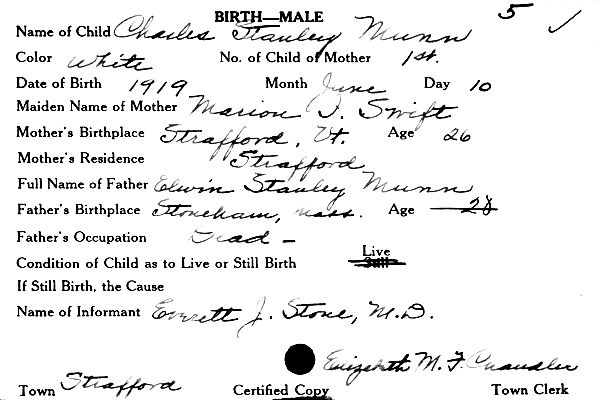 BIRTH—MALE 5 ✓
Name of Child Charles Stanley Munn
Color White No. of Child of Mother 1st.
Date of Birth 1919 Month June Day 10
Maiden Name of Mother Marion I. Swift
Mother's Birthplace Strafford, Vt. Age 26
Mother's Residence Strafford
Full Name of Father Elwin Stanley Munn
Father's Birthplace Stoneham, Mass. Age 28
Father's Occupation Dead –
Condition of Child as to Live or Still Birth Live Still
If Still Birth, the Cause
Name of Informant Everett J. Stone, M.D.
Elizabeth M. F. Chandler
Town Strafford Certified Copy Town Clerk